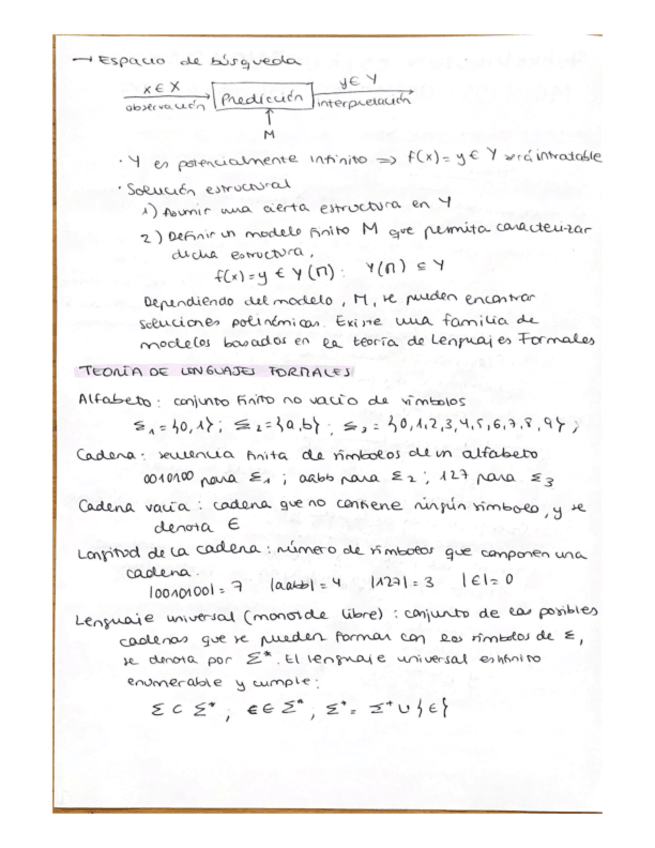 → Espacio de búsqueda
x ∈ X
observación
Predicción
y ∈ Y
interpretación
M
· Y es potencialmente infinito ⇒ f(x) = y ∈ Y será intratable
· Solución estructural
1) Asumir una cierta estructura en Y
2) Definir un modelo finito M que permita caracterizar
dicha estructura,
f(x) = y ∈ Y(M) : Y(M) ⊆ Y
Dependiendo del modelo, M, se pueden encontrar
soluciones polinómicas. Existe una familia de
modelos basados en la teoría de Lenguajes Formales
TEORÍA DE LENGUAJES FORMALES
Alfabeto: conjunto finito no vacío de símbolos
Σ1 = {0,1}; Σ2 = {a,b}; Σ3 = {0,1,2,3,4,5,6,7,8,9};
Cadena: secuencia finita de símbolos de un alfabeto
0010100 para Σ1; aabb para Σ2; 127 para Σ3
Cadena vacía: cadena que no contiene ningún símbolo, y se
denota ∈
Longitud de la cadena: número de símbolos que componen una
cadena.
|00101001| = 7 |aabb| = 4 |127| = 3 |∈| = 0
Lenguaje universal (monoide libre): conjunto de las posibles
cadenas que se pueden formar con los símbolos de Σ,
se denota por Σ*. El lenguaje universal es infinito
enumerable y cumple:
Σ ⊂ Σ*; ∈ ∈ Σ*; Σ* = Σ⁺ ∪ {∈}